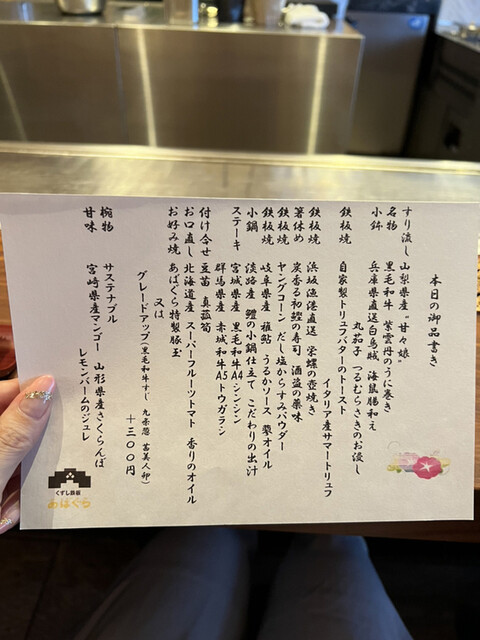 本日の御品書き
すり流し 山梨県産“甘々娘”
名物 黒毛和牛 紫雲丹のうに巻き
小鉢 兵庫県直送白烏賊、海鼠腸和え
丸茄子 つるむらさきのお浸し
鉄板焼 自家製トリュフバターのトースト
イタリア産サマートリュフ
鉄板焼 浜坂漁港直送 栄螺の壺焼き
箸休め 炭香る初鰹の寿司、酒盗の薬味
鉄板焼 ヤングコーン だし塩からすみパウダー
鉄板焼 岐阜県産 稚鮎 うるかソース 蓼オイル
小鍋 淡路産 鱧の小鍋仕立て こだわりの出汁
ステーキ 宮城県産 黒毛和牛A4シンシン
群馬県産 赤城和牛A5トウガラシ
付け合せ 豆苗 真菰筍
お口直し 北海道産 スーパーフルーツトマト 香りのオイル
お好み焼 あばぐら特製豚玉
又は
グレードアップ(黒毛和牛すじ 九条葱 茜美人卵)
+三〇〇円
椀物 サステナブル
甘味 宮崎県産マンゴー 山形県産さくらんぼ
レモンバームのジュレ
くずし鉄板
あばぐら